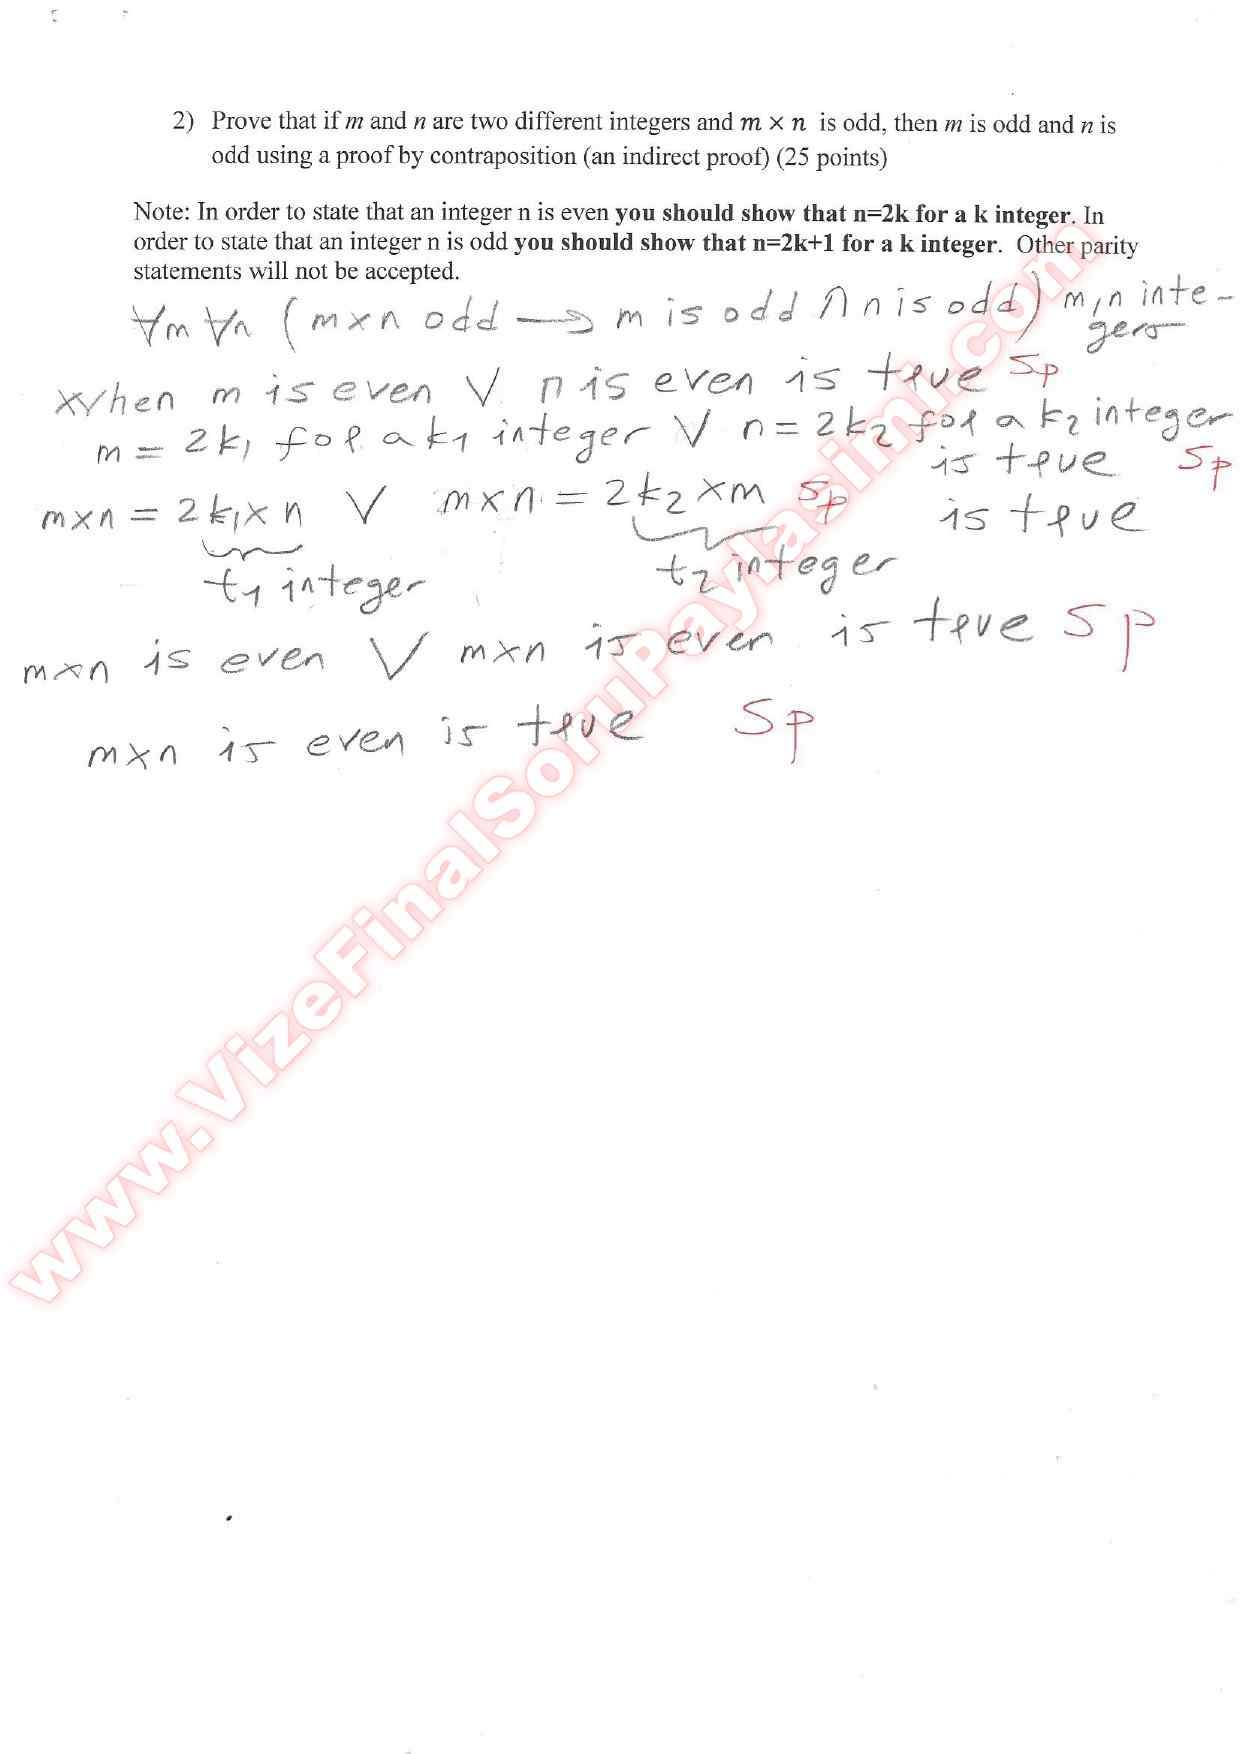 2) Prove that if m and n are two different integers and m × n is odd, then m is odd and n is
odd using a proof by contraposition (an indirect proof) (25 points)
Note: In order to state that an integer n is even you should show that n=2k for a k integer. In
order to state that an integer n is odd you should show that n=2k+1 for a k integer. Other parity
statements will not be accepted.
∀m ∀n (m×n odd → m is odd ∧ n is odd) m,n inte-
gers
When m is even ∨ n is even is true 5p
m = 2k₁ for a k₁ integer ∨ n = 2k₂ for a k₂ integer
is true 5p
m×n = 2k₁×n ∨ m×n = 2k₂×m 5p is true
t₁ integer t₂ integer
m×n is even ∨ m×n is even is true 5p
m×n is even is true 5p
www.VizeFinalSoruPaylasimi.com